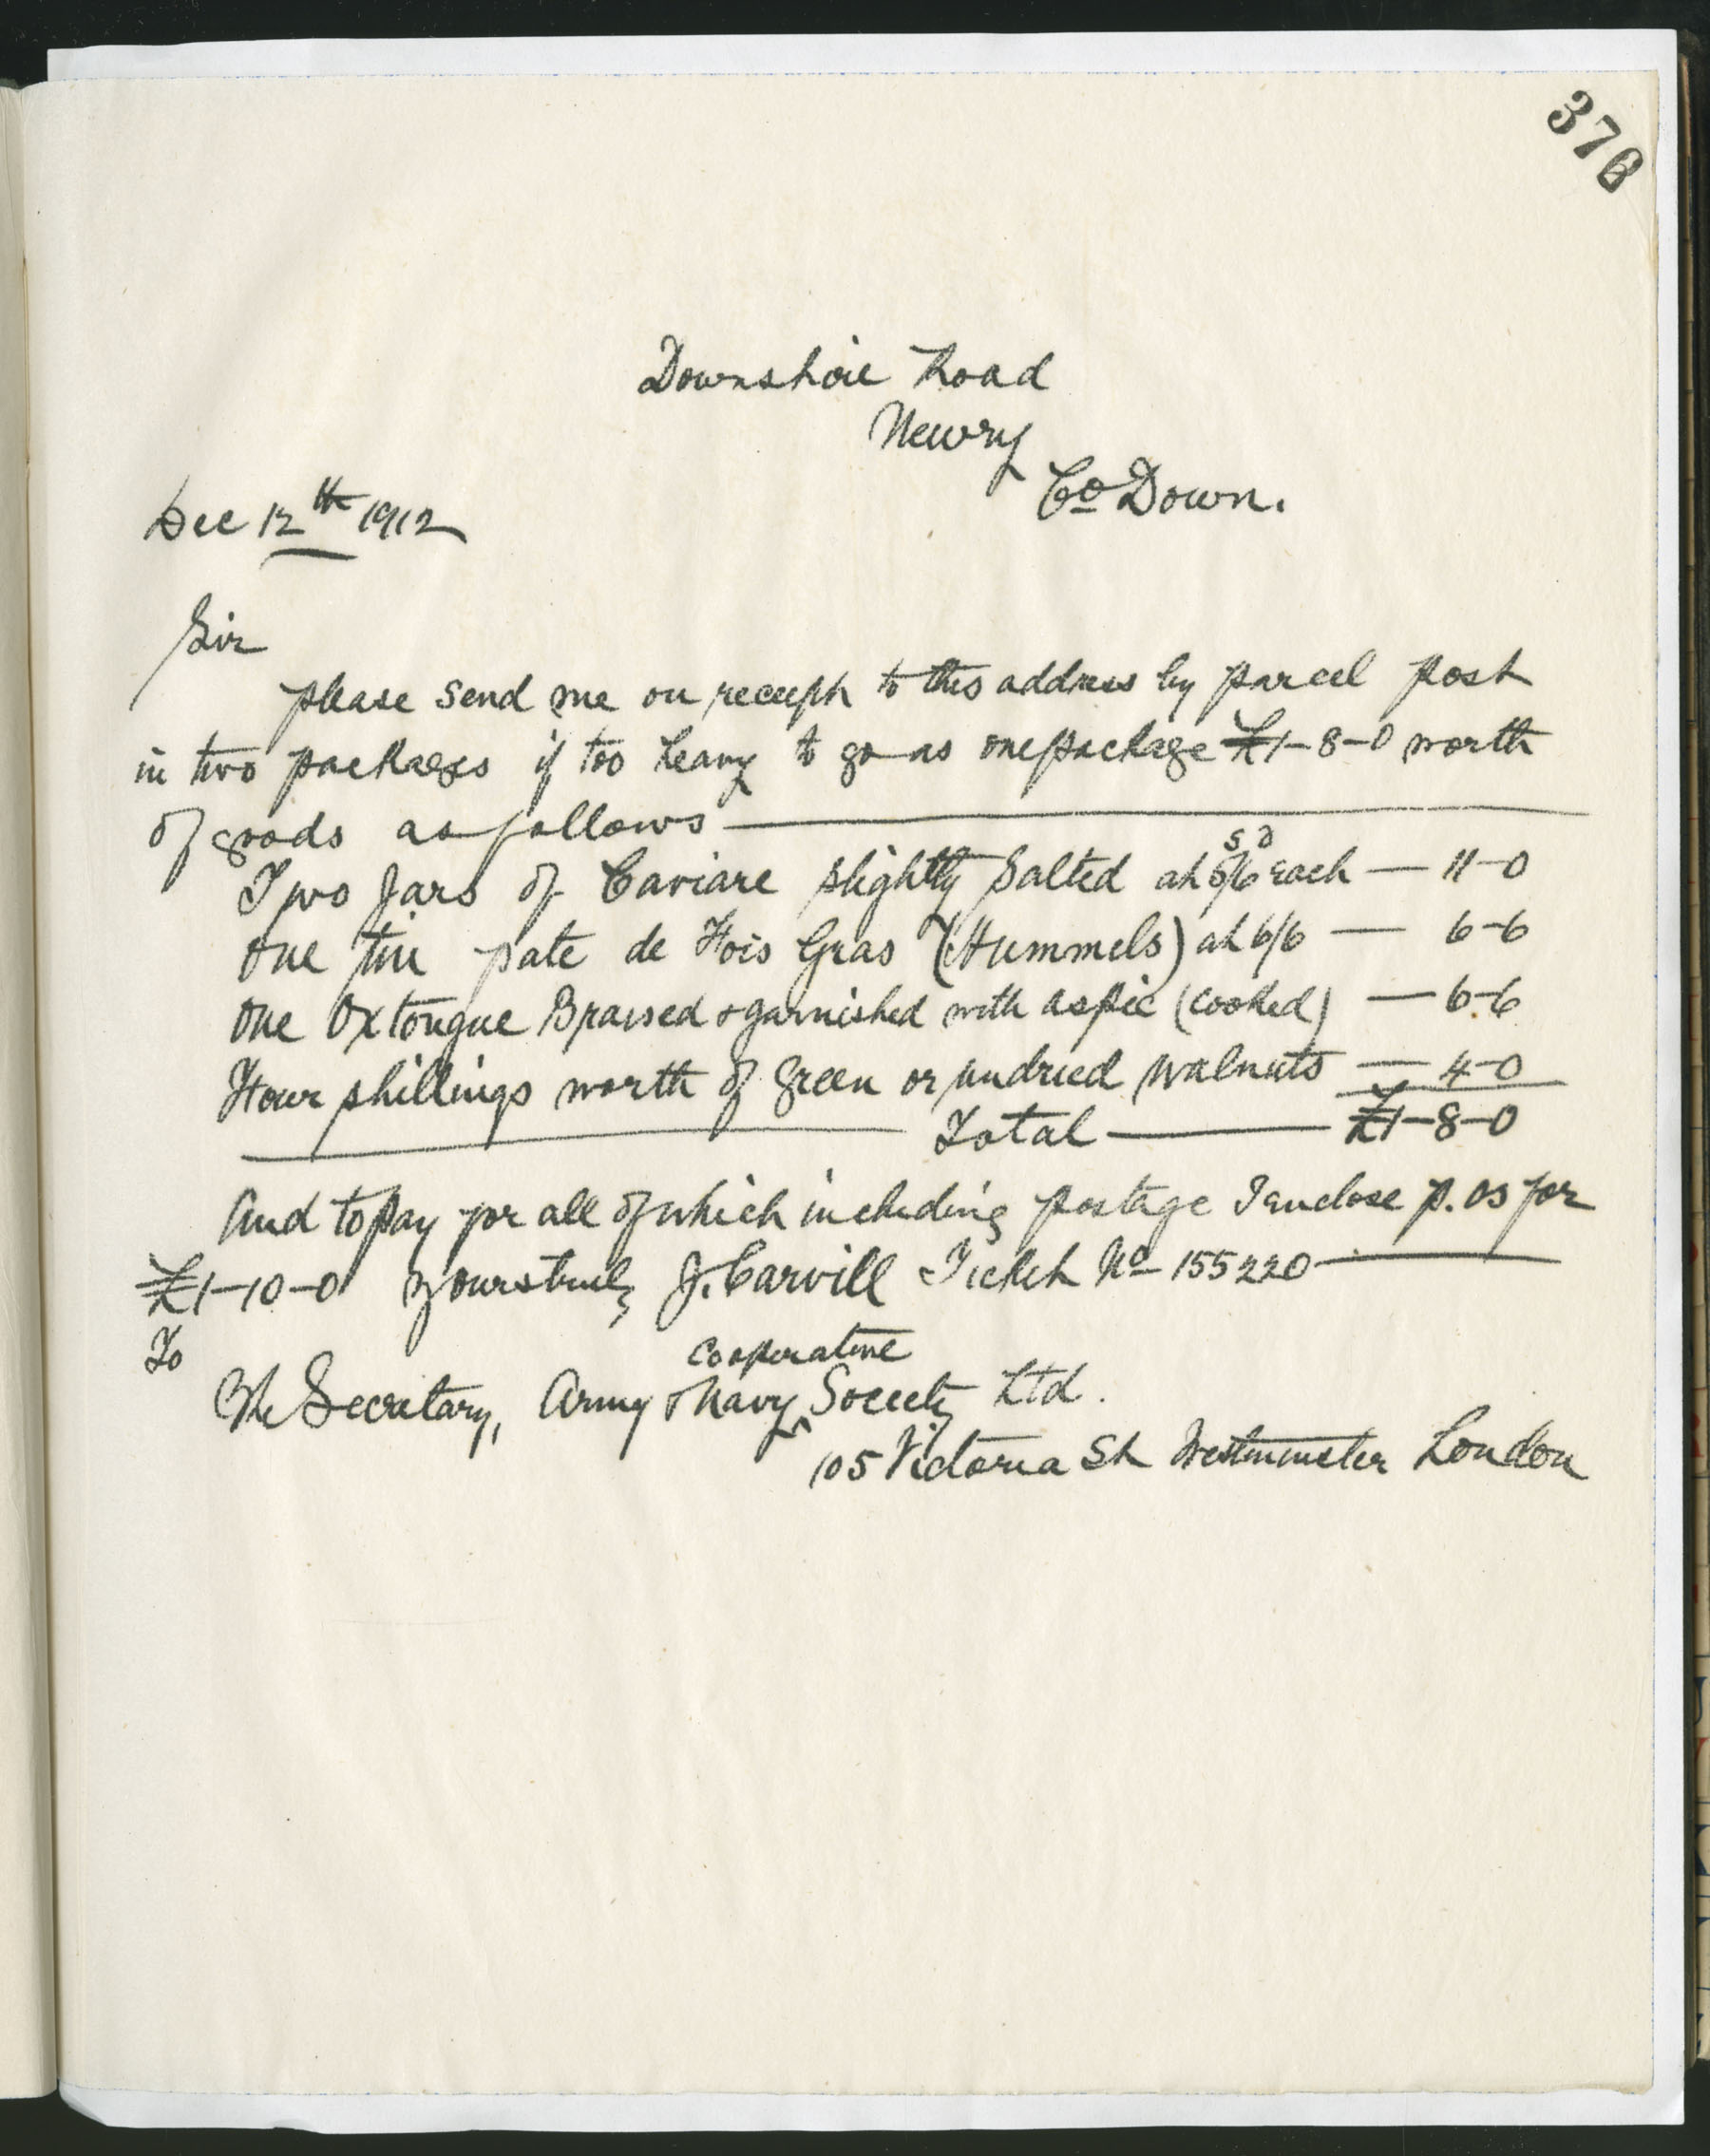 376
Downshire Road
Newry
Co Down.
Dec 12th 1912
Sir
please send me on receipt to this address by parcel post
in two packages if too heavy to go as one package £1-8-0 worth
of goods as follows
Two Jars of Caviare slightly salted at 5/6 each — 11-0
One tin pate de Fois Gras (Hummels) at 6/6 — 6-6
One Ox tongue Braised & garnished with aspic (cooked) — 6-6
Four shillings worth of green or undried walnuts — 4-0
Total — £1-8-0
And to pay for all of which including postage I enclose p. os for
£1-10-0 yours truly J. Carvill Ticket No 155220
To
cooperative
The Secretary, Army & Navy ^ Society Ltd.
105 Victoria St Westminster London